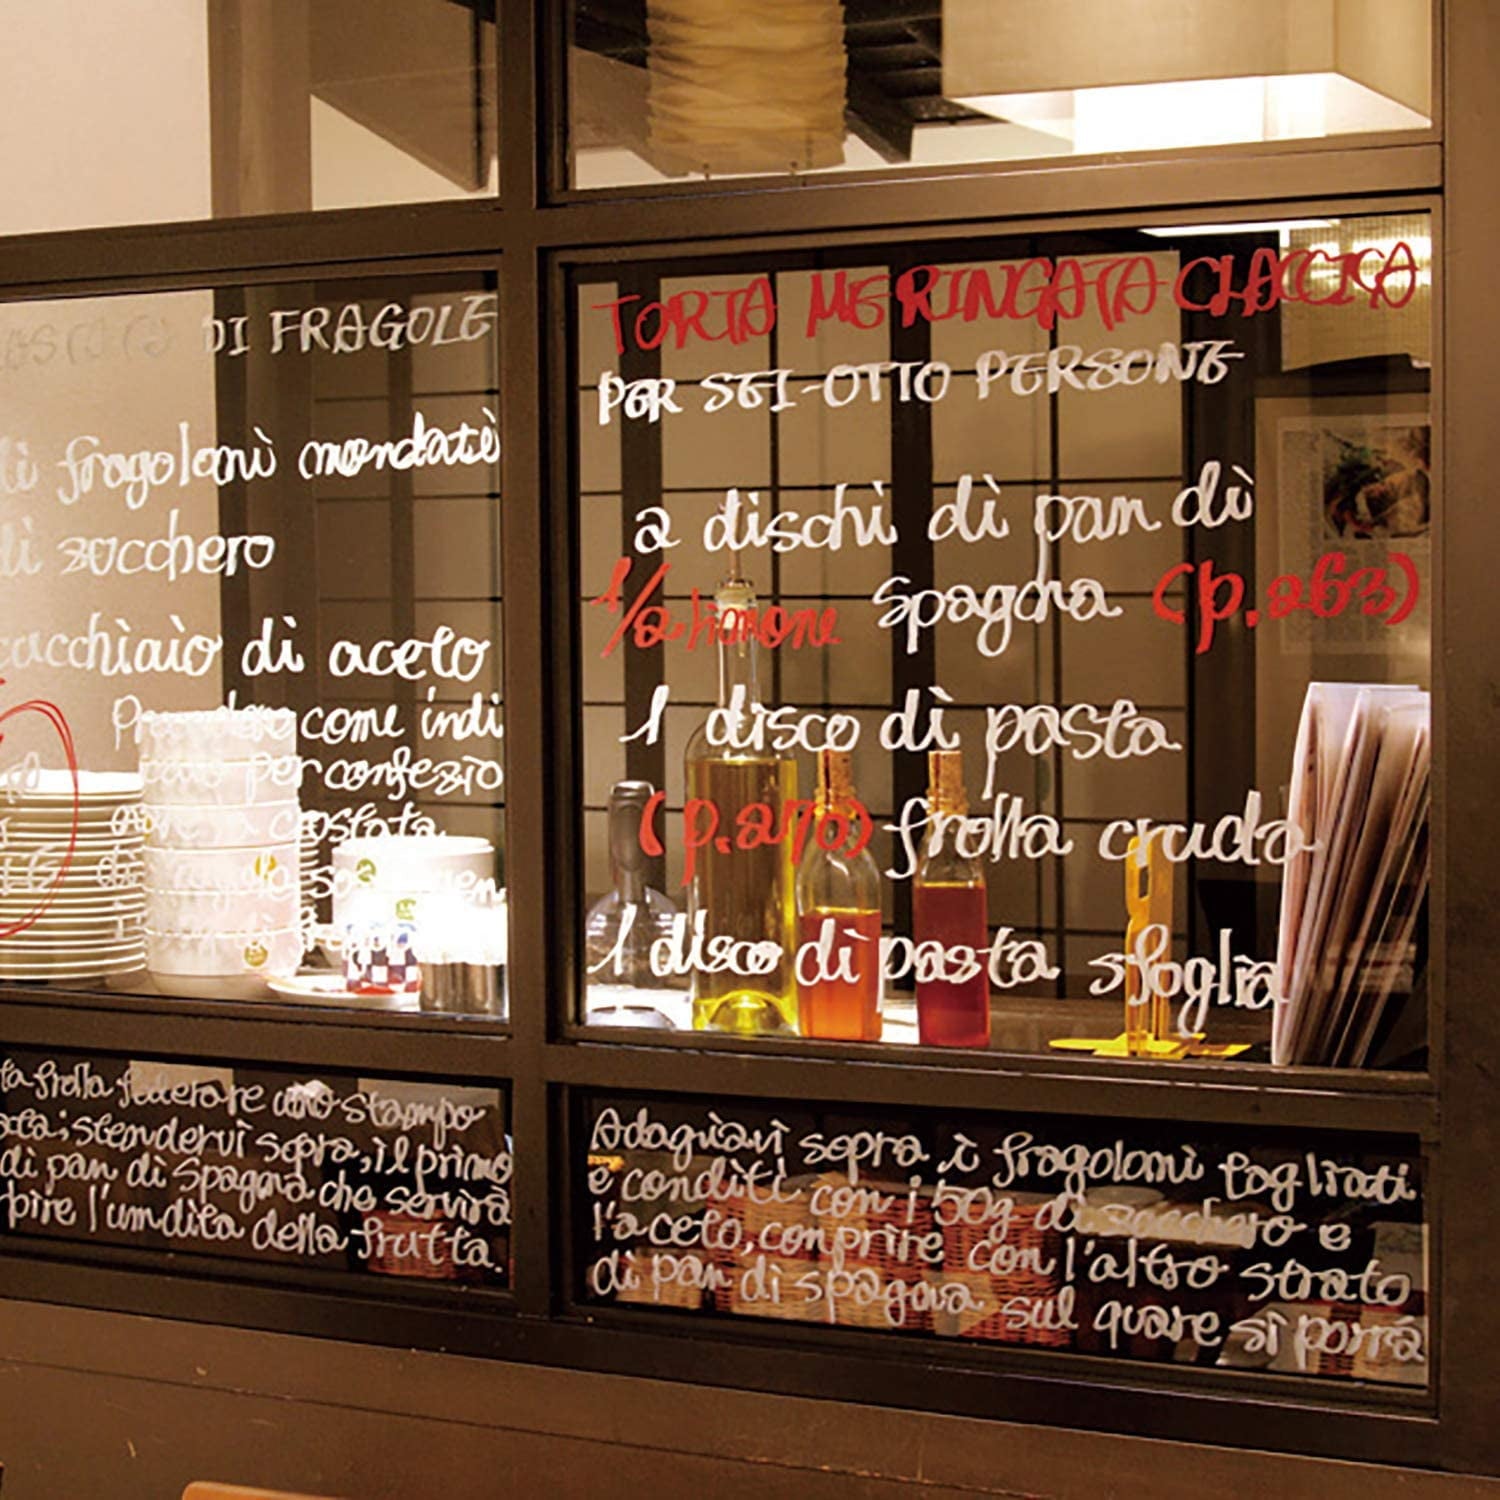 DI FRAGOLE
di fragoloni mondate
di zucchero
cucchiaio di aceto
come indi
per confezio
crostata
ta frolla foderare uno stampo
stendervi sopra, il primo
di pan di Spagna che servirà
l'umdita della frutta.
TORTA MERINGATA CLACCICA
PER SEI-OTTO PERSONE
2 dischi di pan di
1/2 limone spagna (p.263)
1 disco di pasta
(p.270) frolla cruda
1 disco di pasta sfoglia
Adagiavi sopra i fragoloni tagliati
e conditi con i 50g di zucchero e
l'aceto, conprire con l'altro strato
di pan di spagna sul quare si porrà